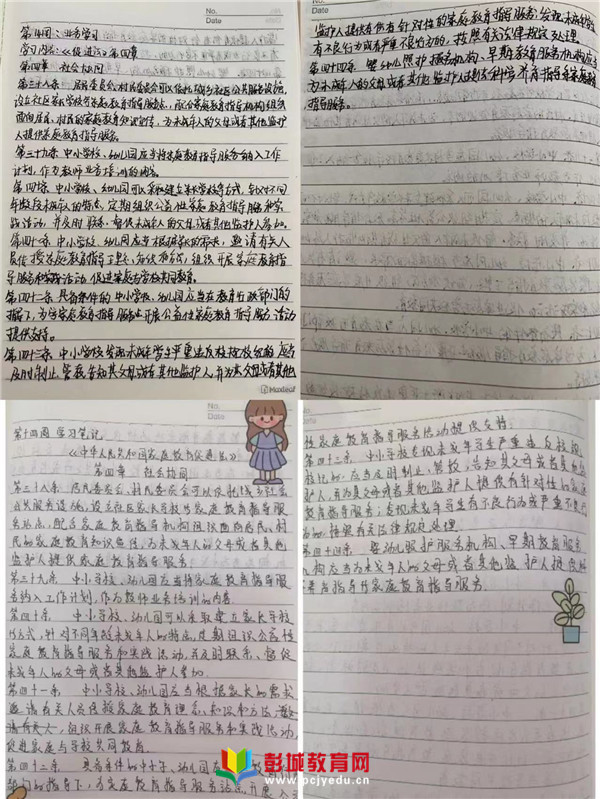 No.
Date
第14周：业务学习
学习内容：《促进法》第四章
第四章 社会协同
第三十八条 居民委员会、村民委员会可以依托城乡社区公共服务设施，
设立社区家长学校等家庭教育指导服务站点，配合家庭教育指导机构组织
面向居民、村民的家庭教育知识宣传，为未成年人的父母或者其他监护
人提供家庭教育指导服务。
第三十九条 中小学校、幼儿园应当将家庭教育指导服务纳入工作
计划，作为教师业务培训的内容。
第四十条 中小学校、幼儿园可以采取建立家长学校等方式，针对不同
年龄段未成年人的特点，定期组织公益性家庭教育指导服务和实
践活动，并及时联系、督促未成年人的父母或者其他监护人参加。
第四十一条 中小学校、幼儿园应当根据家长的需求，邀请有关人
员传授家庭教育理念、知识和方法，组织开展家庭教育指
导服务和实践活动，促进家庭与学校共同教育。
第四十二条 具备条件的中小学校、幼儿园应当在教育行政部门的
指导下，为家庭教育指导服务站点开展公益性家庭教育指导服务活动
提供支持。
第四十三条 中小学校发现未成年学生严重违反校规校纪的，应当
及时制止、管教，告知其父母或者其他监护人，并为其父母或者其他
Maxleaf
No.
Date
监护人提供有针对性的家庭教育指导服务；发现未成年学生
有不良行为或者严重不良行为的，按照有关法律规定处理。
第四十四条 婴幼儿照护服务机构、早期教育服务机构应当
为未成年人的父母或者其他监护人提供科学养育指导等家庭教育
指导服务。
No.
Date
第十四周 学习笔记
《中华人民共和国家庭教育促进法》
第四章 社会协同
第三十八条 居民委员会、村民委员会可以依托城乡社区
公共服务设施，设立社区家长学校等家庭教育指导服
务站点，配合家庭教育指导机构组织面向居民、村
民的家庭教育知识宣传，为未成年人的父母或者其他
监护人提供家庭教育指导服务。
第三十九条 中小学校、幼儿园应当将家庭教育指导服
务纳入工作计划，作为教师业务培训的内容。
第四十条 中小学校、幼儿园可以采取建立家长学校
等方式，针对不同年龄段未成年人的特点，定期组织公益性
家庭教育指导服务和实践活动，并及时联系、督促
未成年人的父母或者其他监护人参加。
第四十一条 中小学校、幼儿园应当根据家长的需求
邀请有关人员传授家庭教育理念、知识和方法，
组织开展家庭教育指导服务和实践活动，
促进家庭与学校共同教育。
第四十二条 具备条件的中小学、幼儿园
指导下，为家庭教育指导服务站点开展公
家庭教育指导服务活动提供支持。
第四十三条 中小学校发现未成年学生严重违反校规
校纪的，应当及时制止、管教，告知其父母或者其他监
护人，并为其父母或者其他监护人提供有针对性的家庭
教育指导服务；发现未成年学生有不良行为或严重不良行
为的，按照有关法律规定处理。
第四十四条 婴幼儿照护服务机构、早期教育服务
机构应当为未成年人的父母或者其他监护人提供科
学养育指导等家庭教育指导服务。
彭城教育网
www.pcjyedu.cn